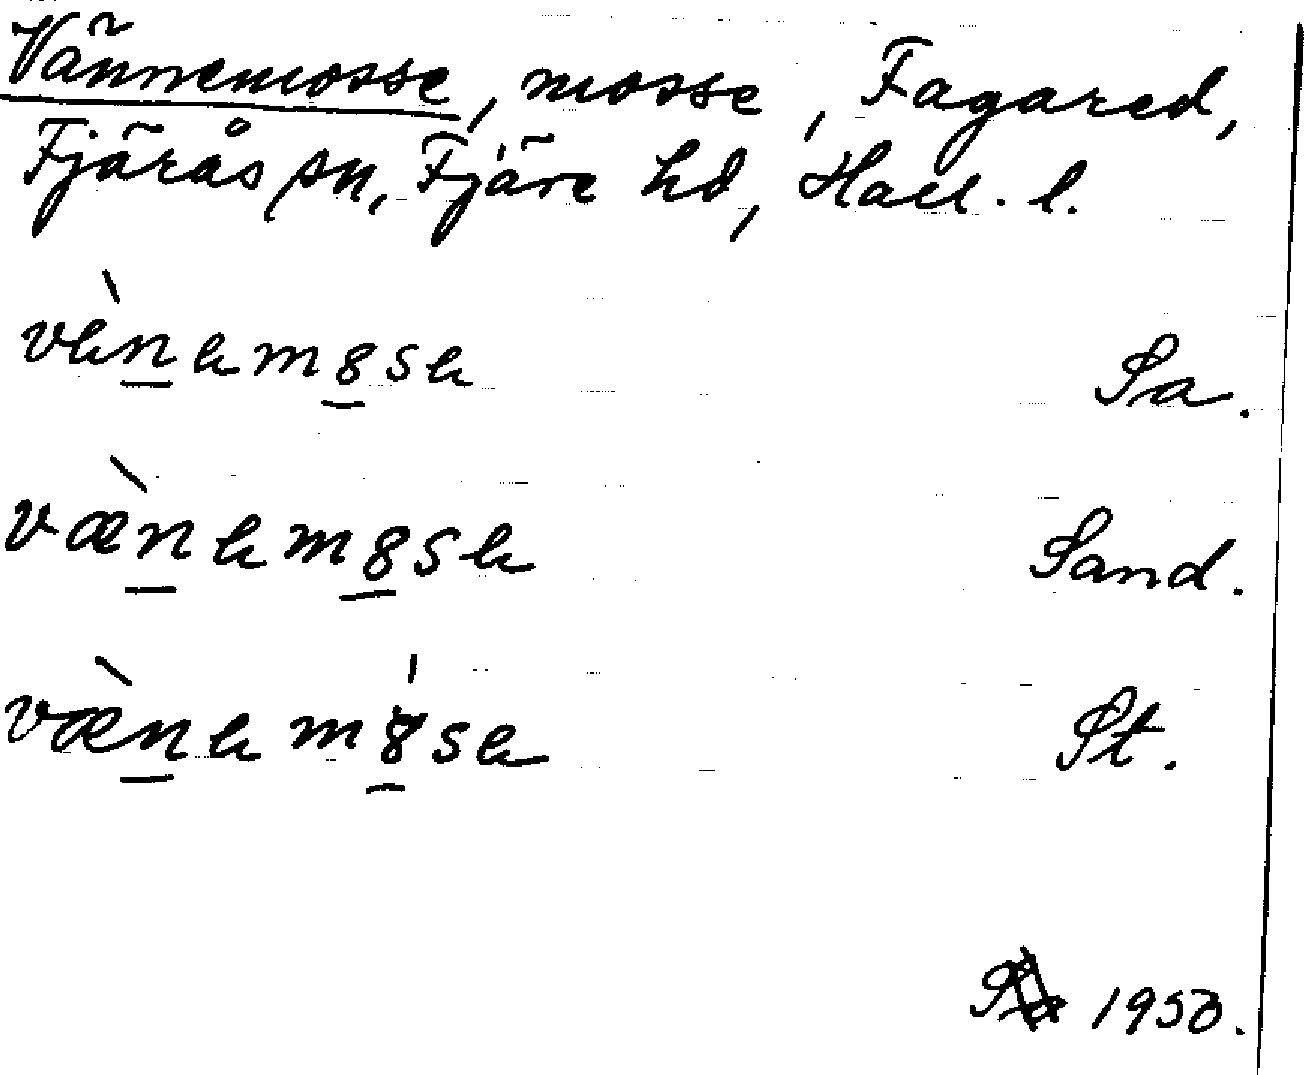 Vännemosse, mosse, Fagared,
Fjärås sn, Fjäre hd, Hall. l.
vèn̲emo̲se Sa.
væ̀n̲emo̲se Sand.
væ̀n̲emó̲se St.
1950.